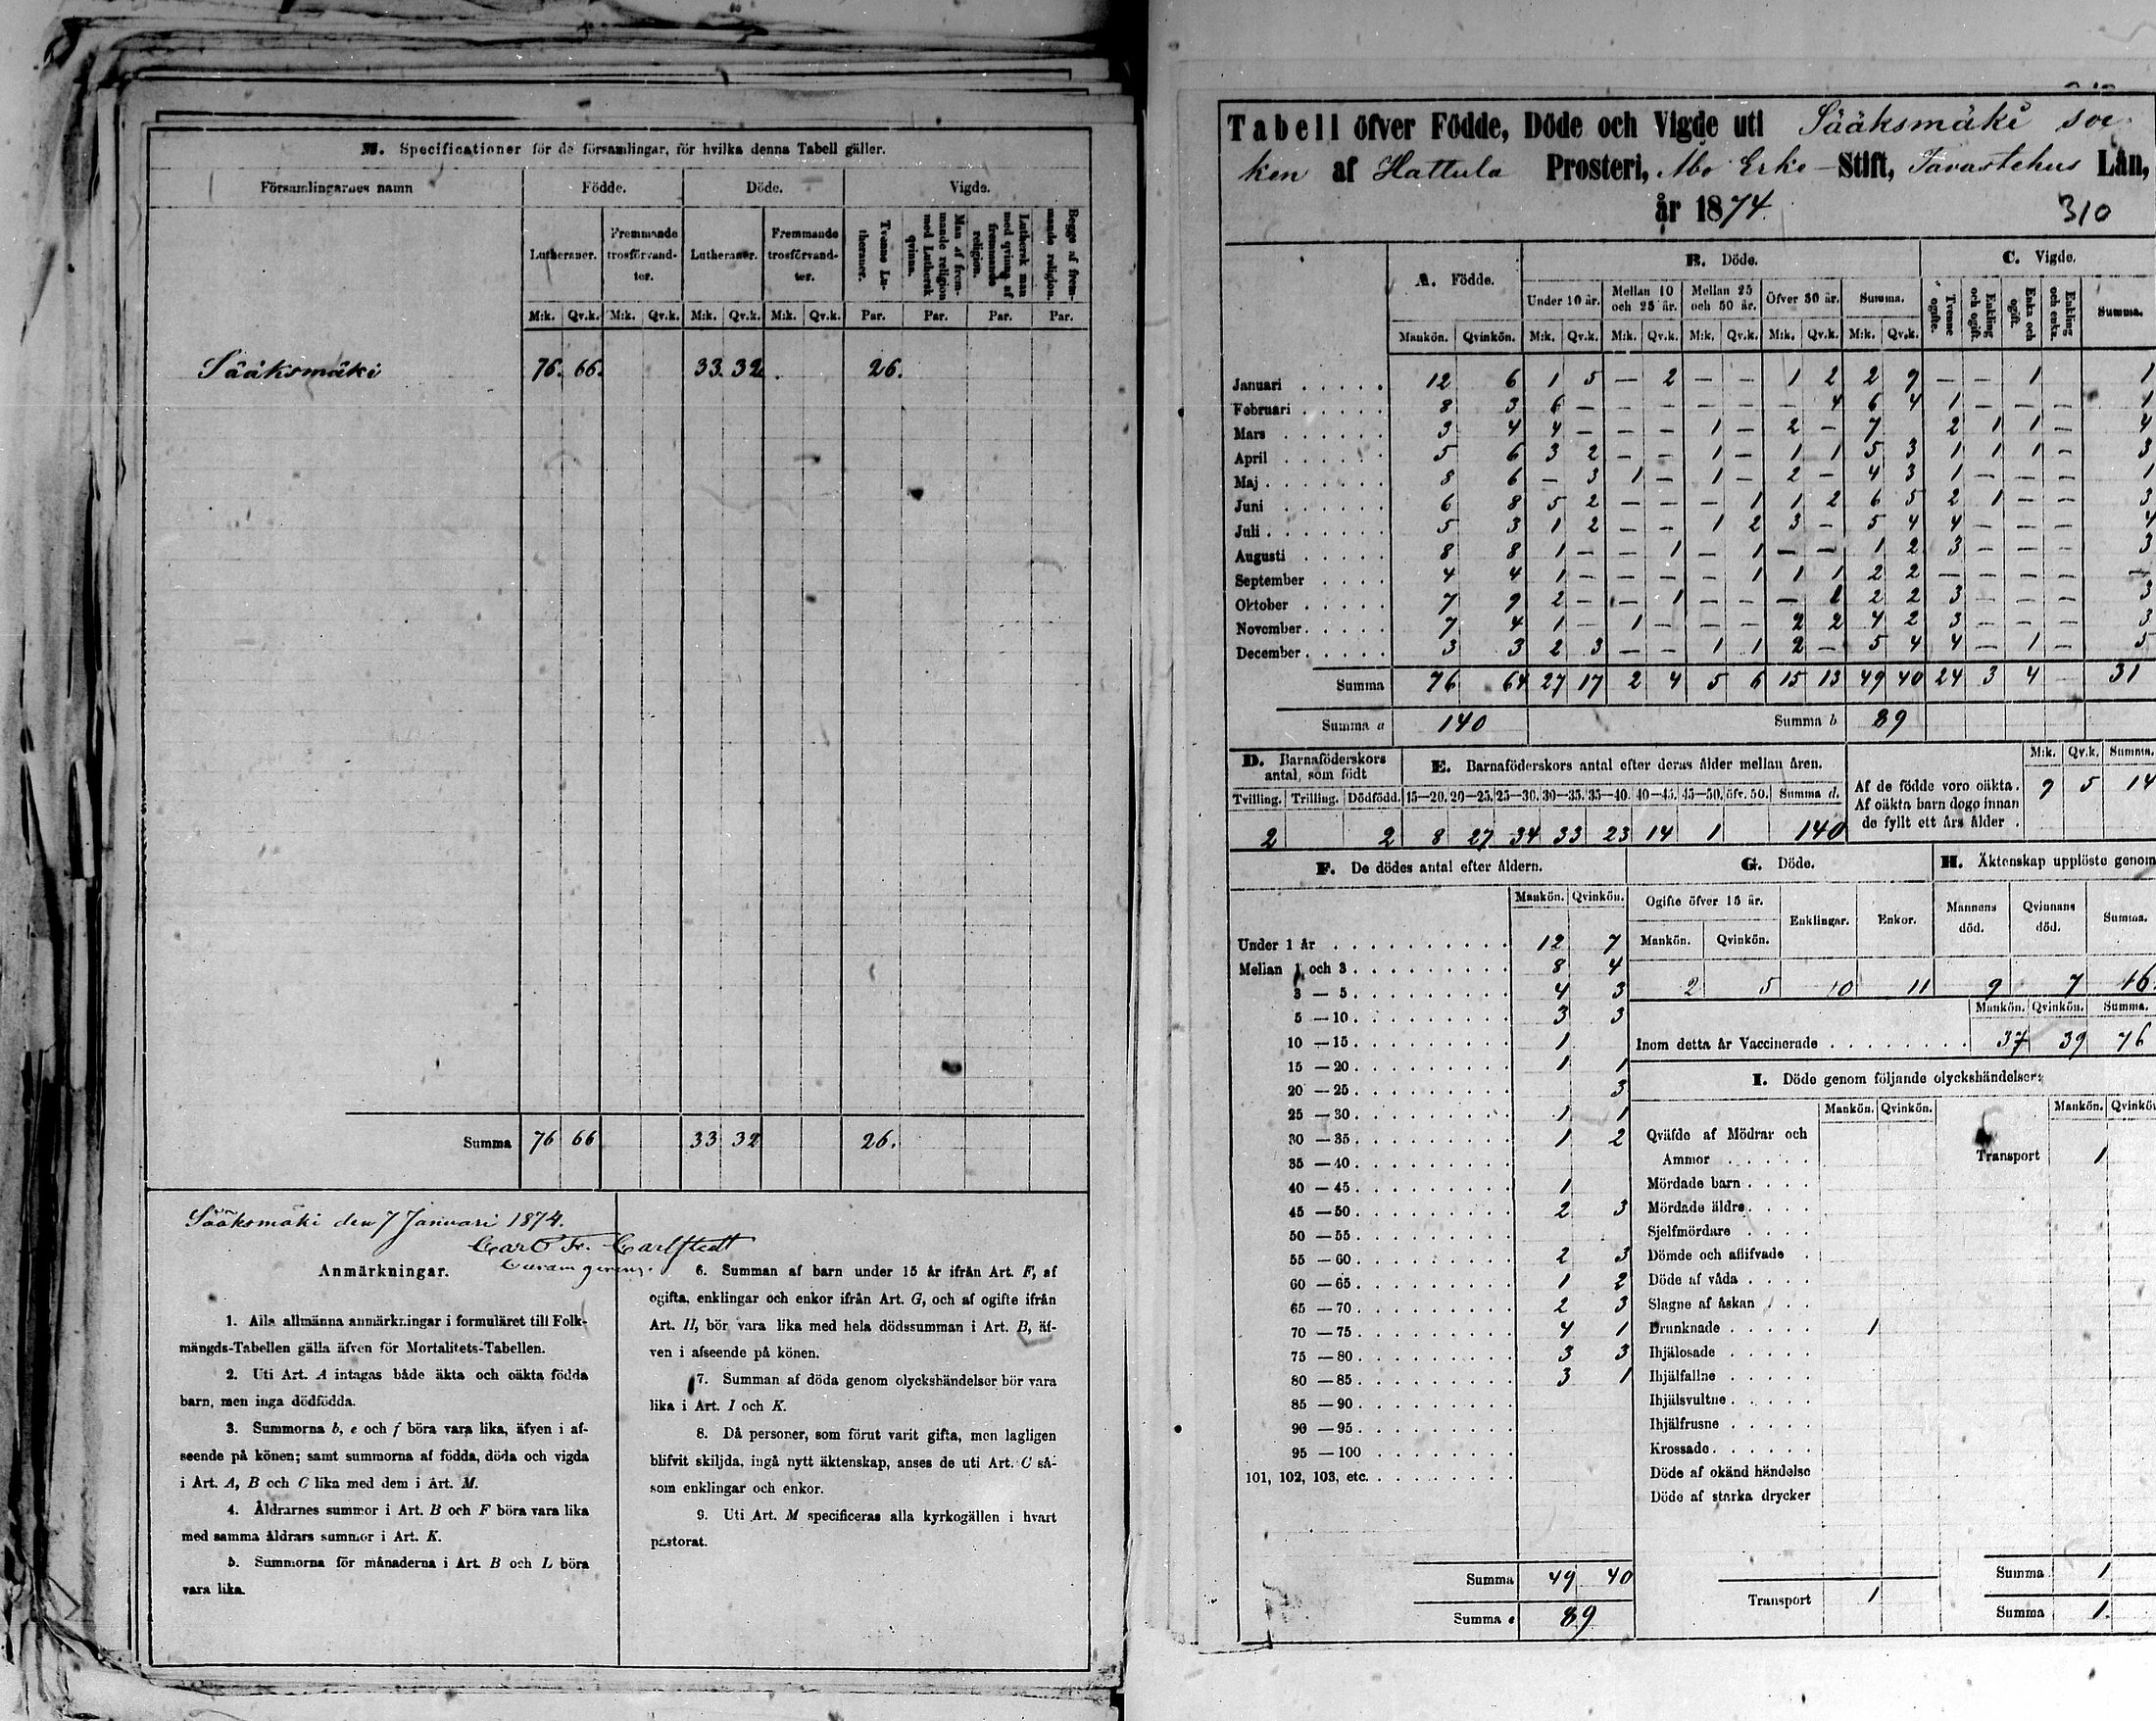 M. Specificationer för de församlingar, för hvilka denna Tabell gäller.
Församlingarnes namn Födde. Döde. Vigde.
Lutheraner. Fremmande trosförvandter. Lutheraner. Fremmande trosförvandter. Tvenne Lutheraner. Man af fremmande religion med Luthersk qvinna. Luthersk man med qvinna af fremmande religion. Begge af fremmande religion.
M:k. Qv.k. M:k. Qv.k. M:k. Qv.k. M:k. Qv.k. Par. Par. Par. Par.
Sääksmäki 76. 66. 33. 32. 26.
Summa 76 66 33 32 26.
Sääksmäki den 7 Januari 1874.
Carl Fr. Carlstedt
Curam gerens.
Anmärkningar.
1. Alla allmänna anmärkningar i formuläret till Folk-
mängds-Tabellen gälla äfven för Mortalitets-Tabellen.
2. Uti Art. A intagas både äkta och oäkta födda
barn, men inga dödfödda.
3. Summorna b, e och f böra vara lika, äfven i af-
seende på könen; samt summorna af födda, döda och vigda
i Art. A, B och C lika med dem i Art. M.
4. Åldrarnes summor i Art. B och F böra vara lika
med samma åldrars summor i Art. K.
5. Summorna för månaderna i Art. B och L böra
vara lika.
6. Summan af barn under 15 år ifrån Art. F, af
ogifta, enklingar och enkor ifrån Art. G, och af ogifte ifrån
Art. H, bör vara lika med hela dödssumman i Art. B, äf-
ven i afseende på könen.
7. Summan af döda genom olyckshändelser bör vara
lika i Art. I och K.
8. Då personer, som förut varit gifta, men lagligen
blifvit skiljda, ingå nytt äktenskap, anses de uti Art. C så-
som enklingar och enkor.
9. Uti Art. M specificeras alla kyrkogällen i hvart
pastorat.
Tabell öfver Födde, Döde och Vigde uti Sääksmäki soc
ken af Hattula Prosteri, Åbo Erke-Stift, Tavastehus Län,
år 1874. 310
A. Födde. B. Döde. C. Vigde.
Under 10 år. Mellan 10 och 25 år. Mellan 25 och 50 år. Öfver 50 år. Summa. Tvenne ogifte. Enkling och ogift. Enka och ogift. Enkling och enka. Summa.
Mankön. Qvinkön. M:k. Qv.k. M:k. Qv.k. M:k. Qv.k. M:k. Qv.k. M:k. Qv.k.
Januari 12 6 1 5 — 2 — — 1 2 2 9 — — 1 1
Februari 8 3 6 — — — — — — 4 6 4 1 — — — 1
Mars 3 4 4 — — — 1 — 2 — 7 2 1 1 — 4
April 5 6 3 2 — — 1 — 1 1 5 3 1 1 1 — 3
Maj 8 6 — 3 1 — 1 — 2 — 4 3 1 — — — 1
Juni 6 8 5 2 — — — 1 1 2 6 5 2 1 — — 3
Juli 5 3 1 2 — — 1 2 3 — 5 4 4 — — — 4
Augusti 8 8 1 — — 1 — 1 — — 1 2 3 — — — 3
September 4 4 1 — — — — 1 1 1 2 2 — — — — —
Oktober 7 9 2 — — 1 — — — 1 2 2 3 — — — 3
November 7 4 1 — 1 — — — 2 2 4 2 3 — — — 3
December 3 3 2 3 — — 1 1 2 — 5 4 4 — 1 — 5
Summa 76 64 27 17 2 4 5 6 15 13 49 40 24 3 4 31
Summa a 140 Summa b 89
D. Barnaföderskors antal, som födt
Tvilling. Trilling. Dödfödd.
2 2
E. Barnaföderskors antal efter deras ålder mellan åren.
15—20. 20—25. 25—30. 30—35. 35—40. 40—45. 45—50. öfv. 50. Summa d.
8 27 34 33 23 14 1 140
M:k. Qv.k. Summa.
Af de födde voro oäkta. 9 5 14
Af oäkta barn dogo innan
de fyllt ett års ålder .
F. De dödes antal efter åldern.
Mankön. Qvinkön.
Under 1 år 12 7
Mellan 1 och 3 8 4
3 — 5 4 3
5 — 10 3 3
10 — 15 1
15 — 20 1 1
20 — 25 3
25 — 30 1 1
30 — 35 1 2
35 — 40
40 — 45 1
45 — 50 2 3
50 — 55
55 — 60 2 3
60 — 65 1 2
65 — 70 2 3
70 — 75 4 1
75 — 80 3 3
80 — 85 3 1
85 — 90
90 — 95
95 — 100
101, 102, 103, etc.
Summa 49 40
Summa e 89
G. Döde.
Ogifte öfver 15 år. Enklingar. Enkor.
Mankön. Qvinkön.
2 5 10 11
H. Äktenskap upplöste genom
Mannens död. Qvinnans död. Summa.
9 7 16.
Mankön. Qvinkön. Summa.
Inom detta år Vaccinerade 37 39 76
I. Döde genom följande olyckshändelser:
Mankön. Qvinkön. Mankön. Qvinkön
Qväfde af Mödrar och
Ammor Transport 1
Mördade barn
Mördade äldre
Sjelfmördare
Dömde och aflifvade
Döde af våda
Slagne af åskan
Drunknade 1
Ihjälosade
Ihjälfallne
Ihjälsvultne
Ihjälfrusne
Krossade
Döde af okänd händelse
Döde af starka drycker
Summa 1
Transport 1
Summa 1.